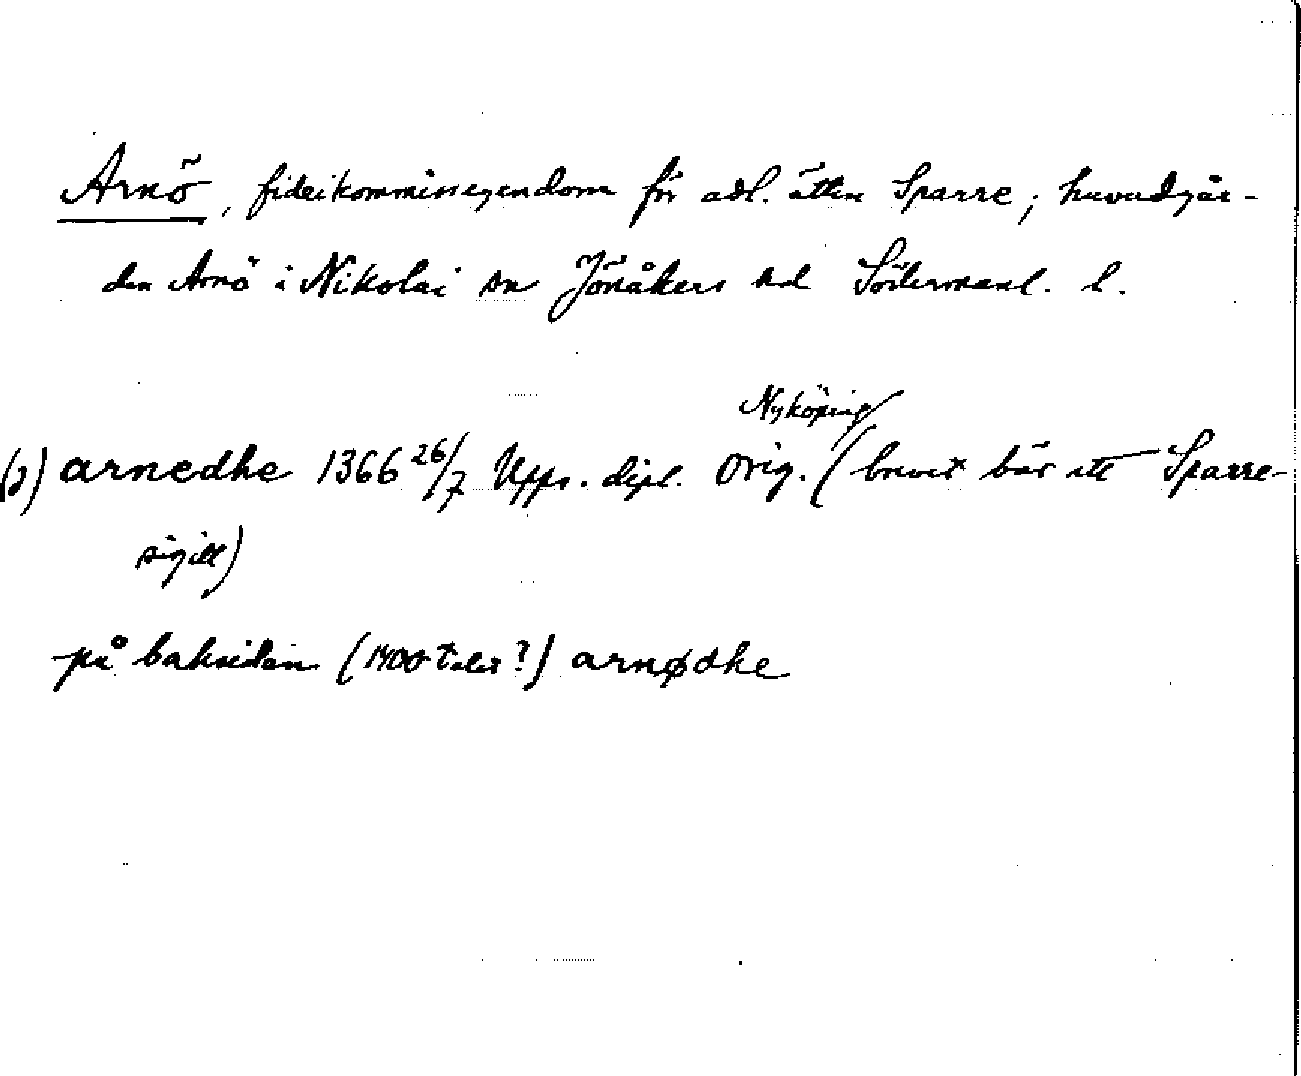 Arnö, fideikommissegendom för adl. ätten Sparre; huvudgår-
den Arnö i Nikolai sn Jönåkers hd Södermanl. l.
Nyköping
(i) arnedhe 1366 26/7 Upps. dipl. Orig. (brevet bär ett Sparre-
sigill)
på baksidan (1400-talet?) arnødhe